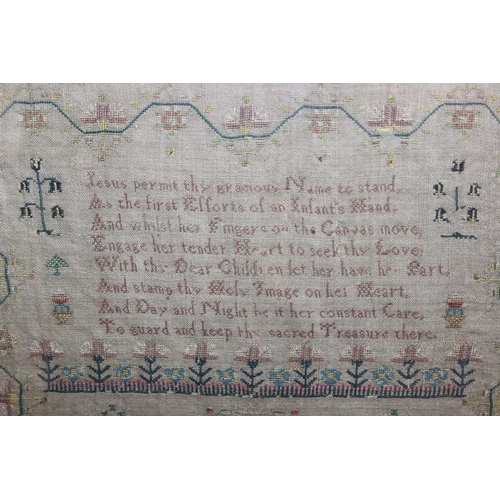 Jesus permit thy gracious Name to stand,
As the first Efforts of an Infant's Hand,
And whilst her Fingers on the Canvas move,
Engage her tender Heart to seek thy Love;
With thy Dear Children let her have her Part,
And stamp thy Holy Image on her Heart,
And Day and Night be it her constant Care,
To guard and keep the sacred Treasure there.